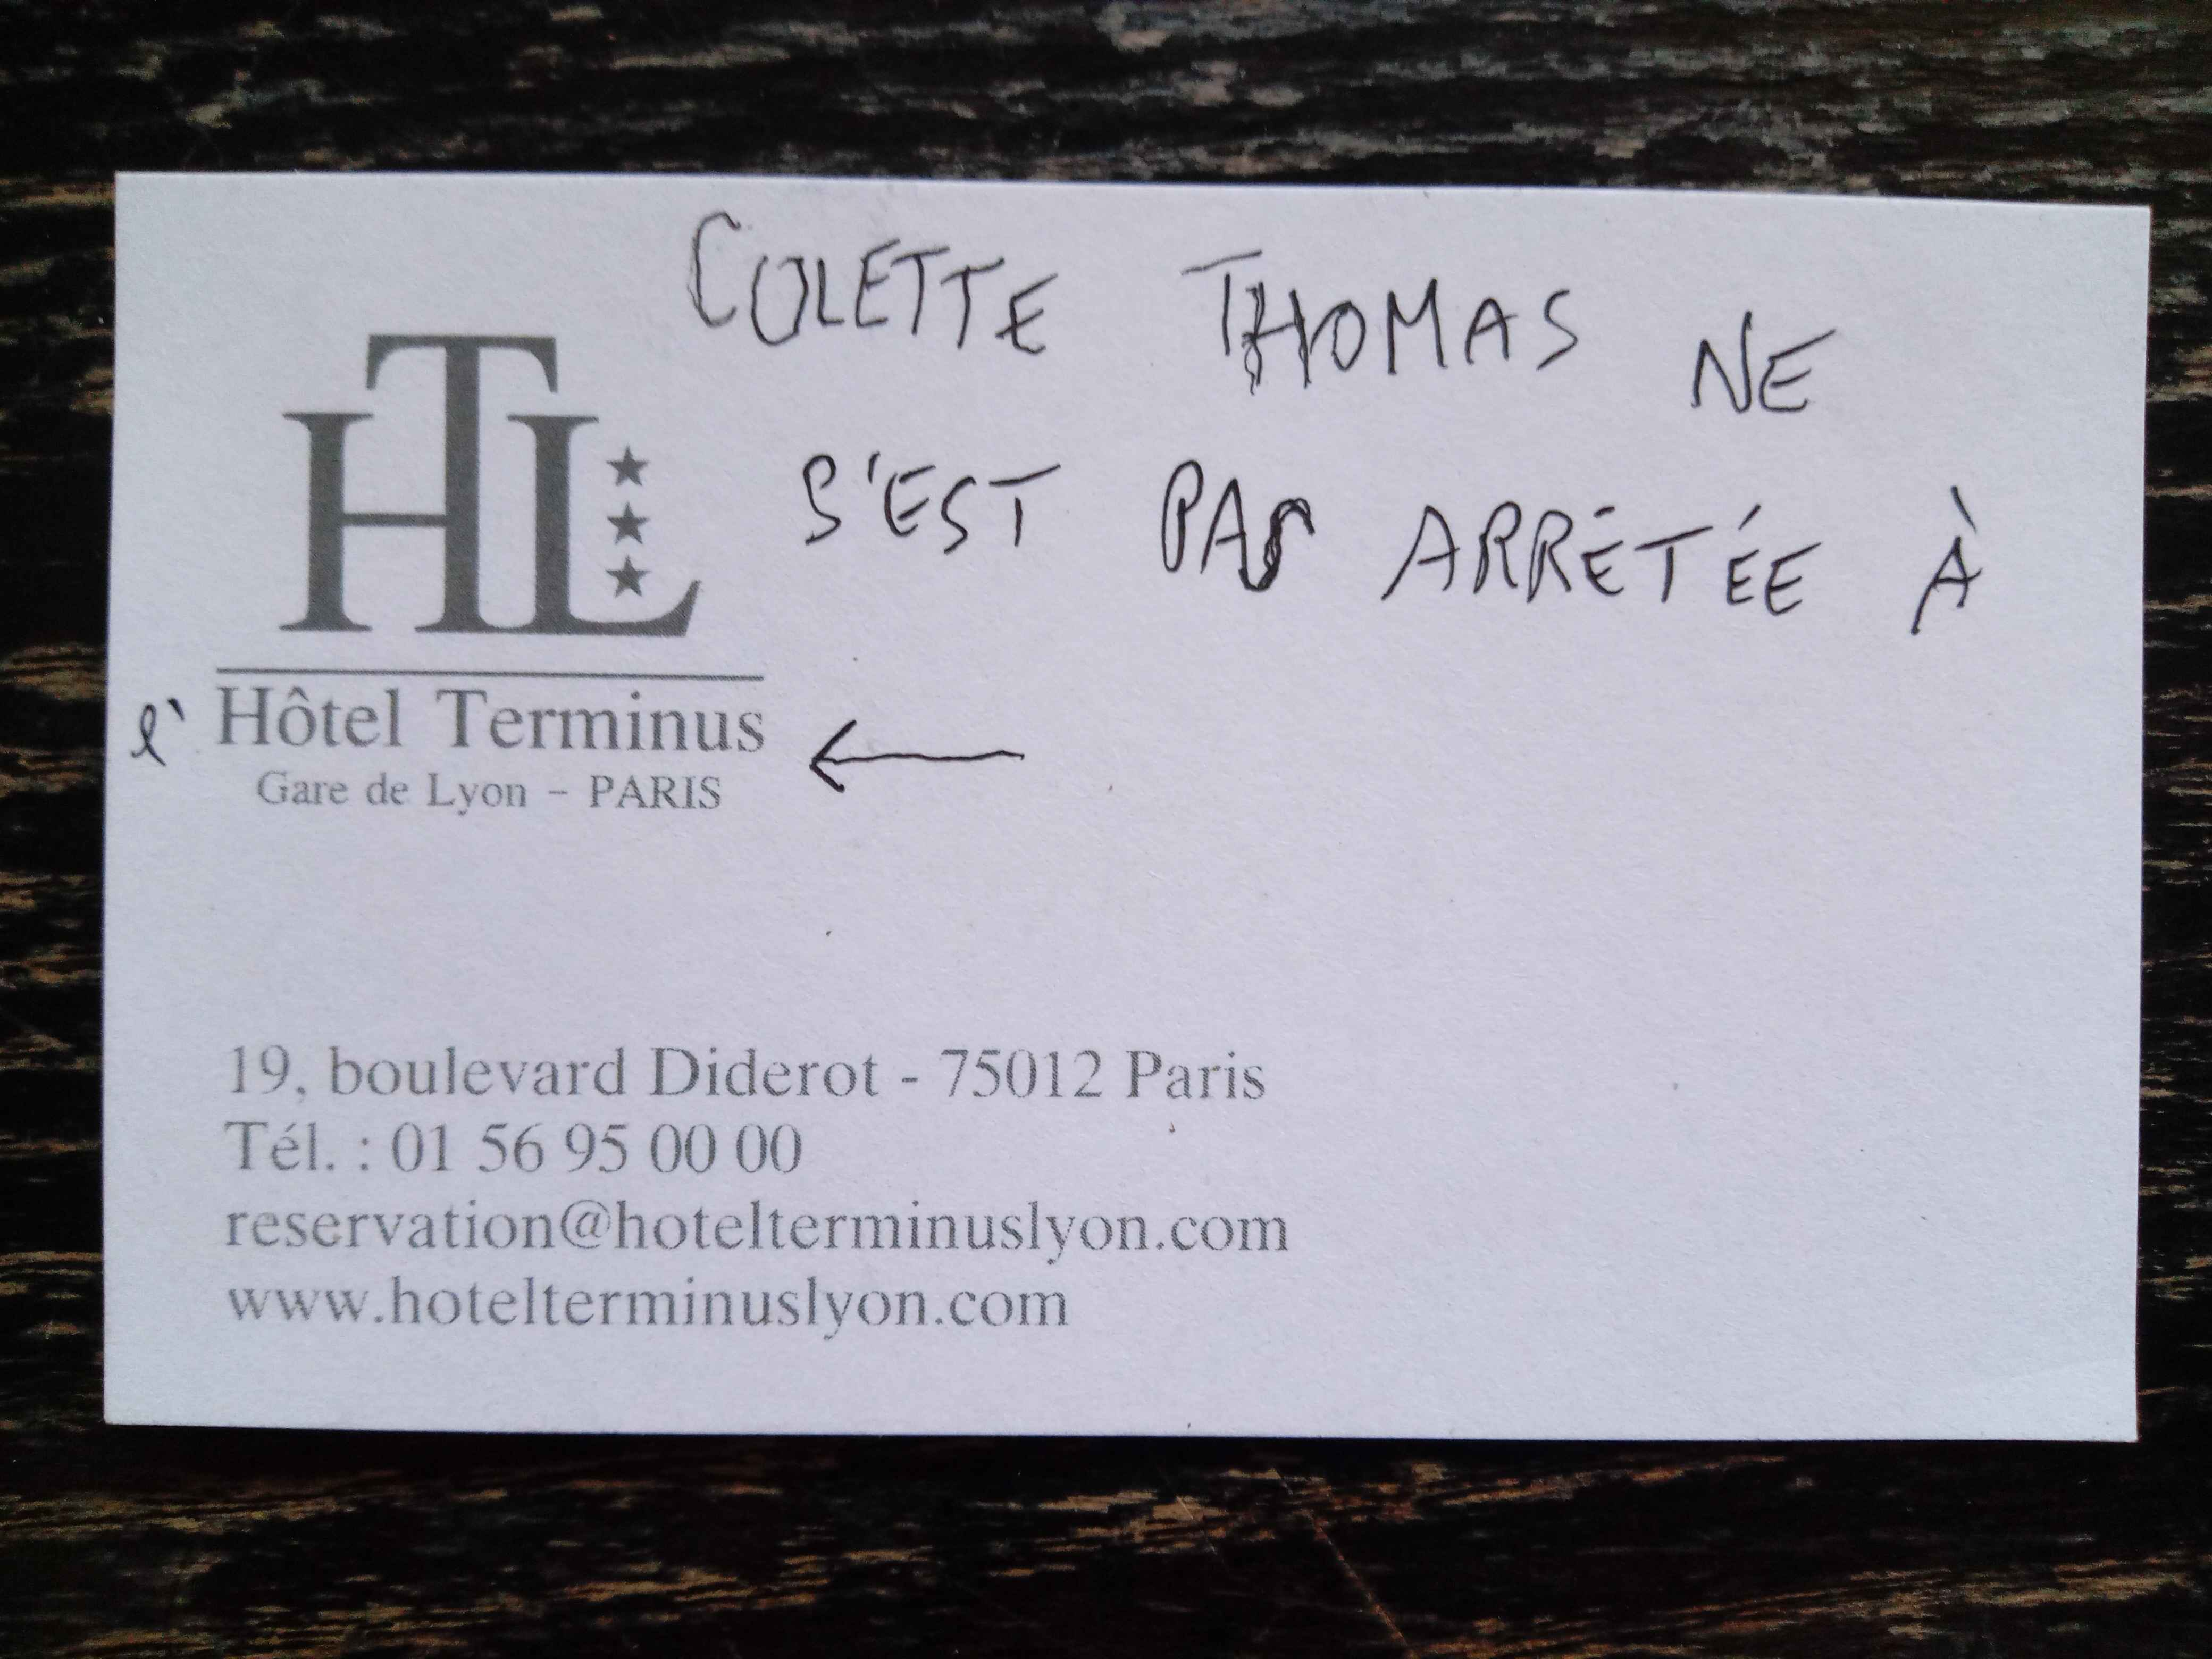 COLETTE THOMAS NE
S'EST PAS ARRÊTÉE À
HTL
l' Hôtel Terminus
Gare de Lyon - PARIS
19, boulevard Diderot - 75012 Paris
Tél. : 01 56 95 00 00
reservation@hotelterminuslyon.com
www.hotelterminuslyon.com